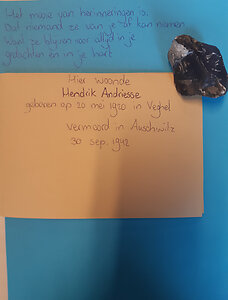 Het mooie van herinneringen is,
Dat niemand ze van je af kan nemen
Want ze blijven voor altijd in je
gedachten en in je hart
Hier woonde
Hendrik Andriesse
geboren op 20 mei 1920 in Veghel
vermoord in Auschwitz
30 sep. 1942